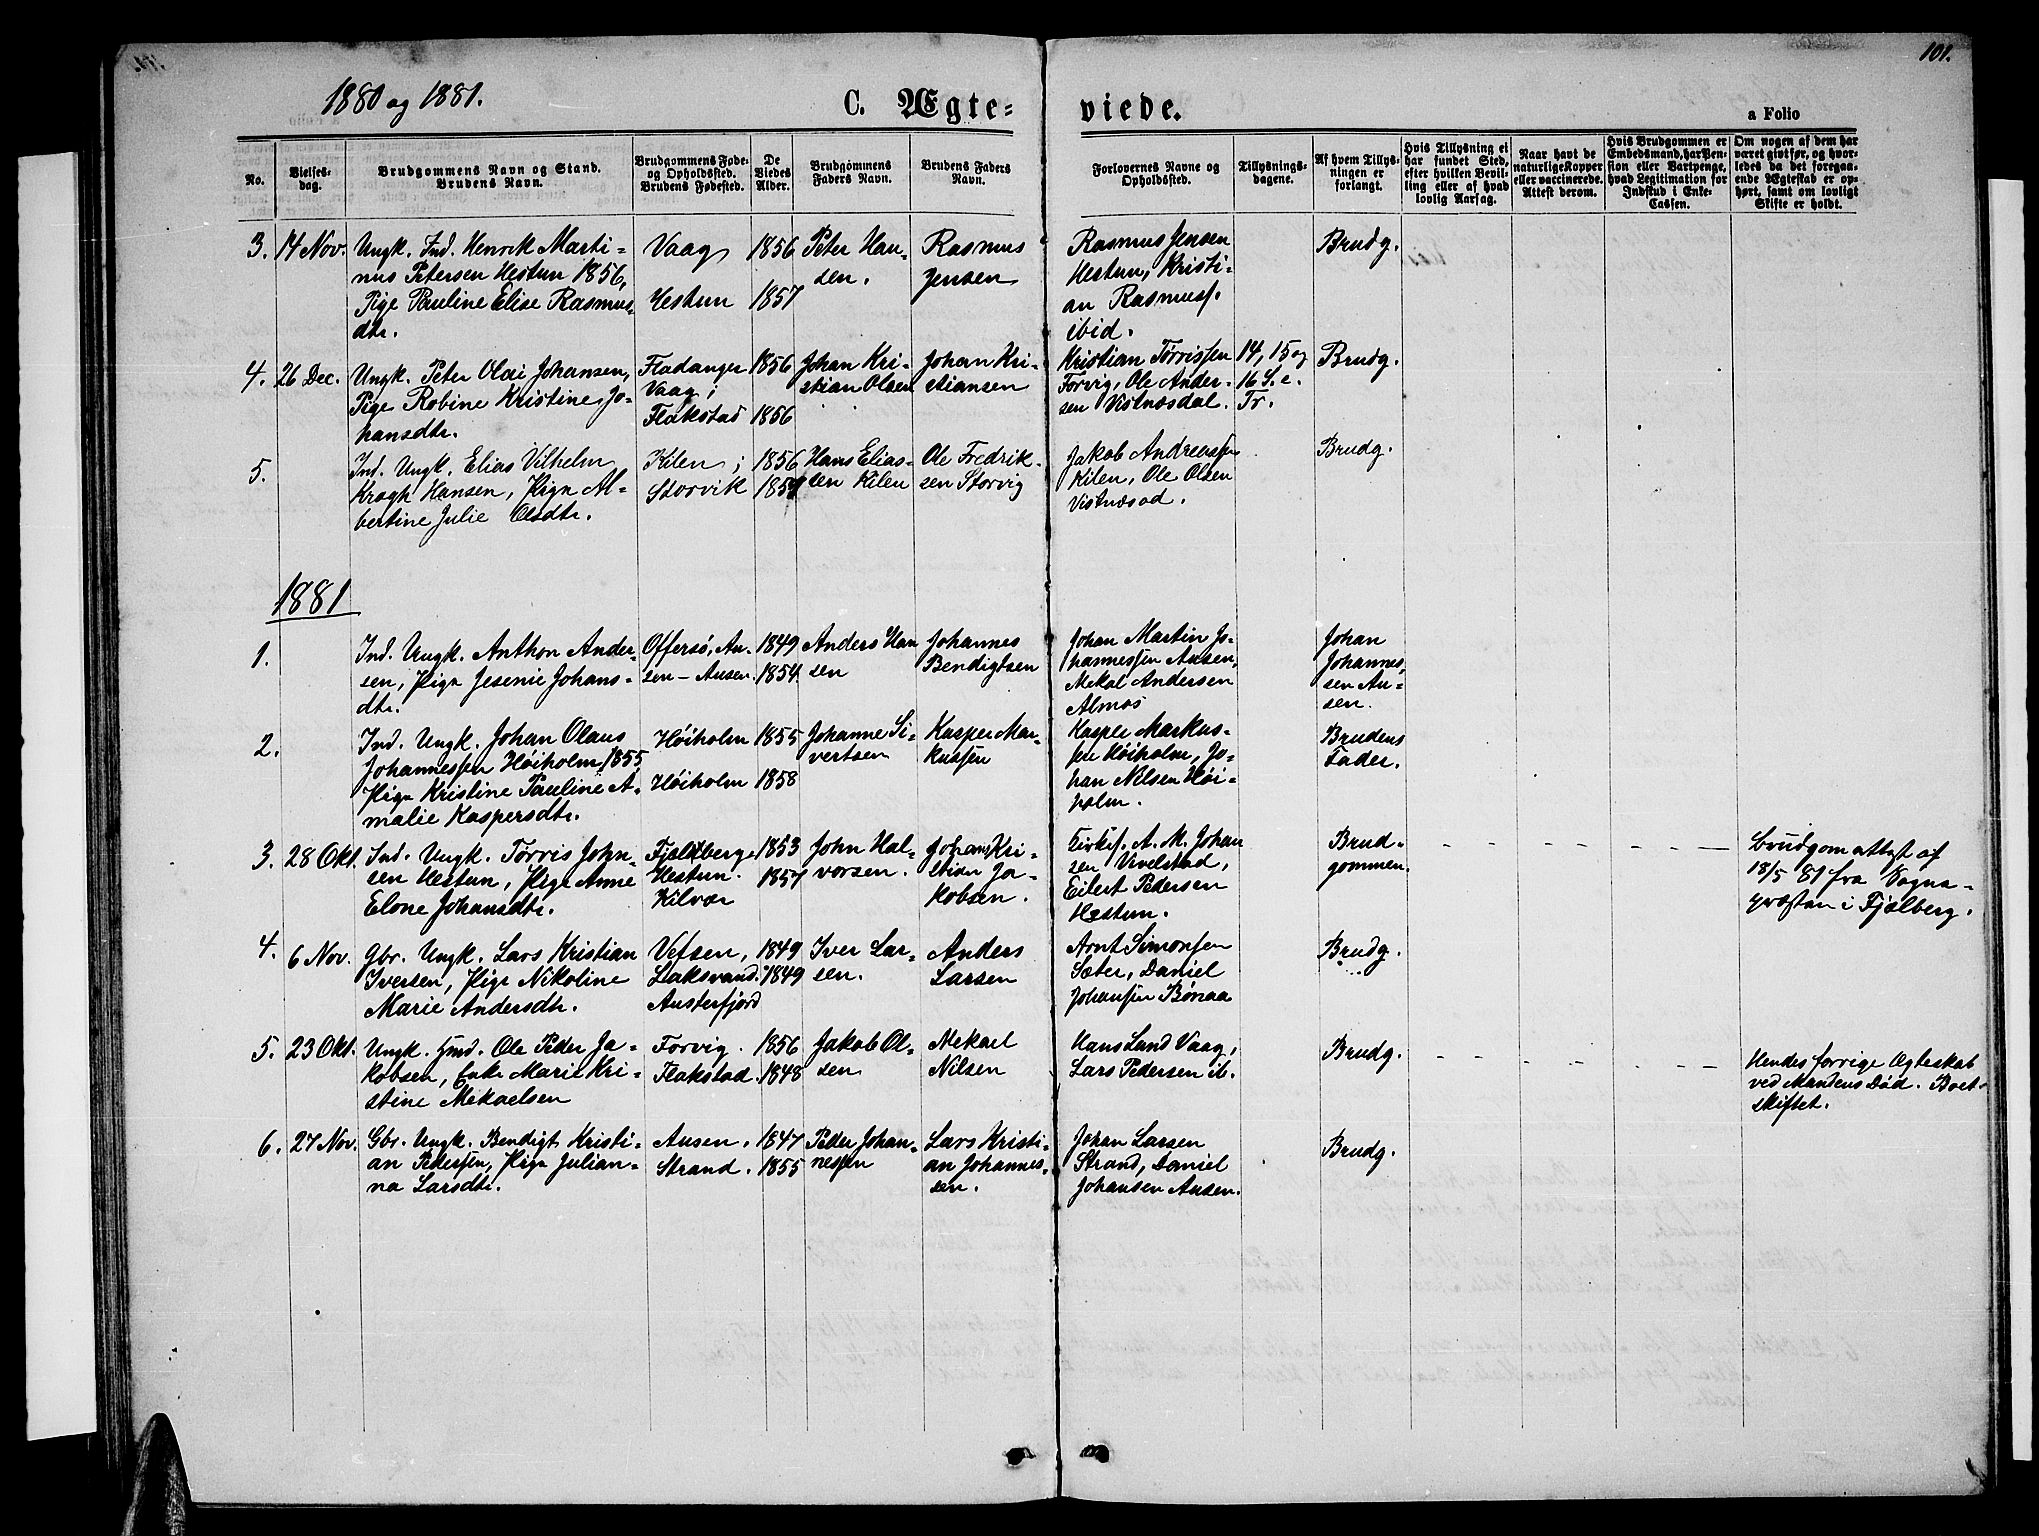 101.
1880 og 1881.
C. Ægte=
viede.
a Folio
No.
Vielses-
dag.
Brudgommens Navn og Stand.
Brudens Navn.
Brudgommens Føde-
og Opholdssted.
Brudens Fødested.
De
Viedes
Alder.
Brudgommens
Faders Navn.
Brudens Faders
Navn.
Forlovernes Navne og
Opholdssted.
Tillysnings-
dagene.
Af hvem Tillys-
ningen er
forlangt.
Hvis Tillysning ei
har fundet Sted,
efter hvilken Bevil-
ling eller af hvad
lovlig Aarsag.
Naar havt de
naturlige Kopper
eller vaccinerede.
Attest derom.
Hvis Brudgommen er
Embedsmand, har Pen-
sion eller Vartpenge,
hvad Legitimation for
Indskud i Enke-
Cassen.
Om nogen af dem har
været gift før, og hvor-
ledes da det foregaa-
ende Ægteskab er op-
hørt, samt om lovligt
Skifte er holdt.
3. 14 Nov.
Ungk. Ind. Henrik Marti-
nus Petersen Hestun 1856,
Pige Pauline Elise Rasmus-
dtr.
Vaag
Hestun
1856
1857
Peter Han-
sen.
Rasmus
Jensen
Rasmus Jensen
Hestun, Kristi-
an Rasmuss.
ibid.
Brudg.
4. 26 Dec.
Ungk. Peter Olai Johansen,
Pige Robine Kristine Jo-
hansdtr.
Fladanger
Vaag;
Flakstad
1856
1856
Johan Kri-
stian Olsen
Johan Kri-
stiansen
Kristian Tørrissen
Forvig, Ole Ander-
sen Vistnæsdal.
14, 15 og
16 S. e.
Tr.
Brudg.
5.
Ind. Ungk. Elias Vilhelm
Krogh Hansen, Pige Al-
bertine Julie Olsdtr.
Kilen;
Storvik
1856
Hans Elias-
sen Kilen
Ole Fredrik-
sen Storvig
Jakob Andreassen
Kilen, Ole Olsen
Vistnæsod.
Brudg.
1881
1.
Ind. Ungk. Anthon Ander-
sen, Pige Jesenie Johans-
dtr.
Offersø, Au-
sen - Ausen.
1849
1854.
Anders Han
sen
Johannes
Bendigtsen
Johan Martin Jo-
hannessen Ausen,
Mekal Andersen
Almos
Johan
Johannes-
sen Au-
sen.
2.
Ind. Ungk. Johan Olaus
Johannessen Høiholm 1855
Pige Kristine Pauline A-
malie Kaspersdtr.
Høiholm
Høiholm
1855
1858
Johanne Si-
vertsen
Kasper Mar-
kussen
Kasper Markus-
sen Høiholm, Jo-
han Nilsen Høi-
holm.
Brudens
Fader.
3. 28 Okt.
Ind. Ungk. Tørris John-
sen Hestun, Pige Anne
Elone Johansdtr.
Fjeldberg
Hestun.
Kilvær
1853
1857
John Hal-
vorsen.
Johan Kri-
stian Ja-
kobsen.
Kirkes. A. M. Johan
sen Vivelstad,
Eilert Pedersen
Hestun.
Brud-
gommen.
Brudgom attest af
18/5 81 fra Sogne-
præsten i Fjelberg.
4. 6 Nov.
Gbr. Ungk. Lars Kristian
Iversen, Pige Nikoline
Marie Andersdtr.
Vefsen,
Laksvand.
Austerfjord
1849
1849
Iver Lar-
sen.
Anders
Larsen
Arnt Simonsen
Sæter, Daniel
Johansen Bønaa
Brudg.
5. 23 Okt.
Ungk. Hmd. Ole Peder Ja-
kobsen, Enke Marie Kri-
stine Mekaelsen
Forvig.
Flakstad.
1856
1848
Jakob Ol-
sen
Mekael
Nilsen
Hans Lund Vaag,
Lars Pedersen ib.
Brudg.
Hendes forrige Ægteskab
ved Mandens Død. Boet
skiftet.
6. 27 Nov.
Gbr. Ungk. Bendigt Kristi-
an Pedersen, Pige Julian-
na Larsdtr.
Ausen.
Strand.
1847
1855
Peder Johan-
nessen
Lars Kristi-
an Johannes-
sen.
Johan Larsen
Strand, Daniel
Johansen Ausen.
Brudg.